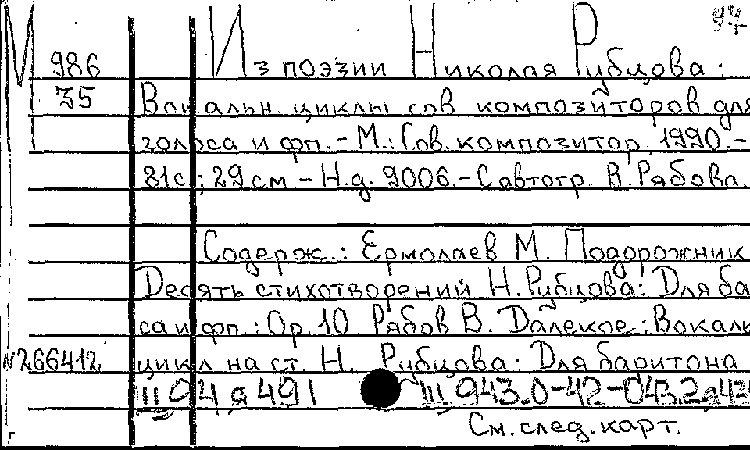 97
М
986
35
Из поэзии Николая Рубцова:
Вокальн. циклы сов композиторов для
голоса и фп. - М.: Сов. композитор, 1990. -
81с.; 29 см - Н.д. 9006. - С автогр. В. Рябова.
Содерж.: Ермолаев М. Подорожник:
Десять стихотворений Н. Рубцова: Для ба
са и фп.: Ор. 10 Рябов В. Далекое: Вокальн
N266412 цикл на ст. Н. Рубцова: Для баритона
Ш 94 я 491 Ш 943.0-42-043.2я43
См. след. карт.